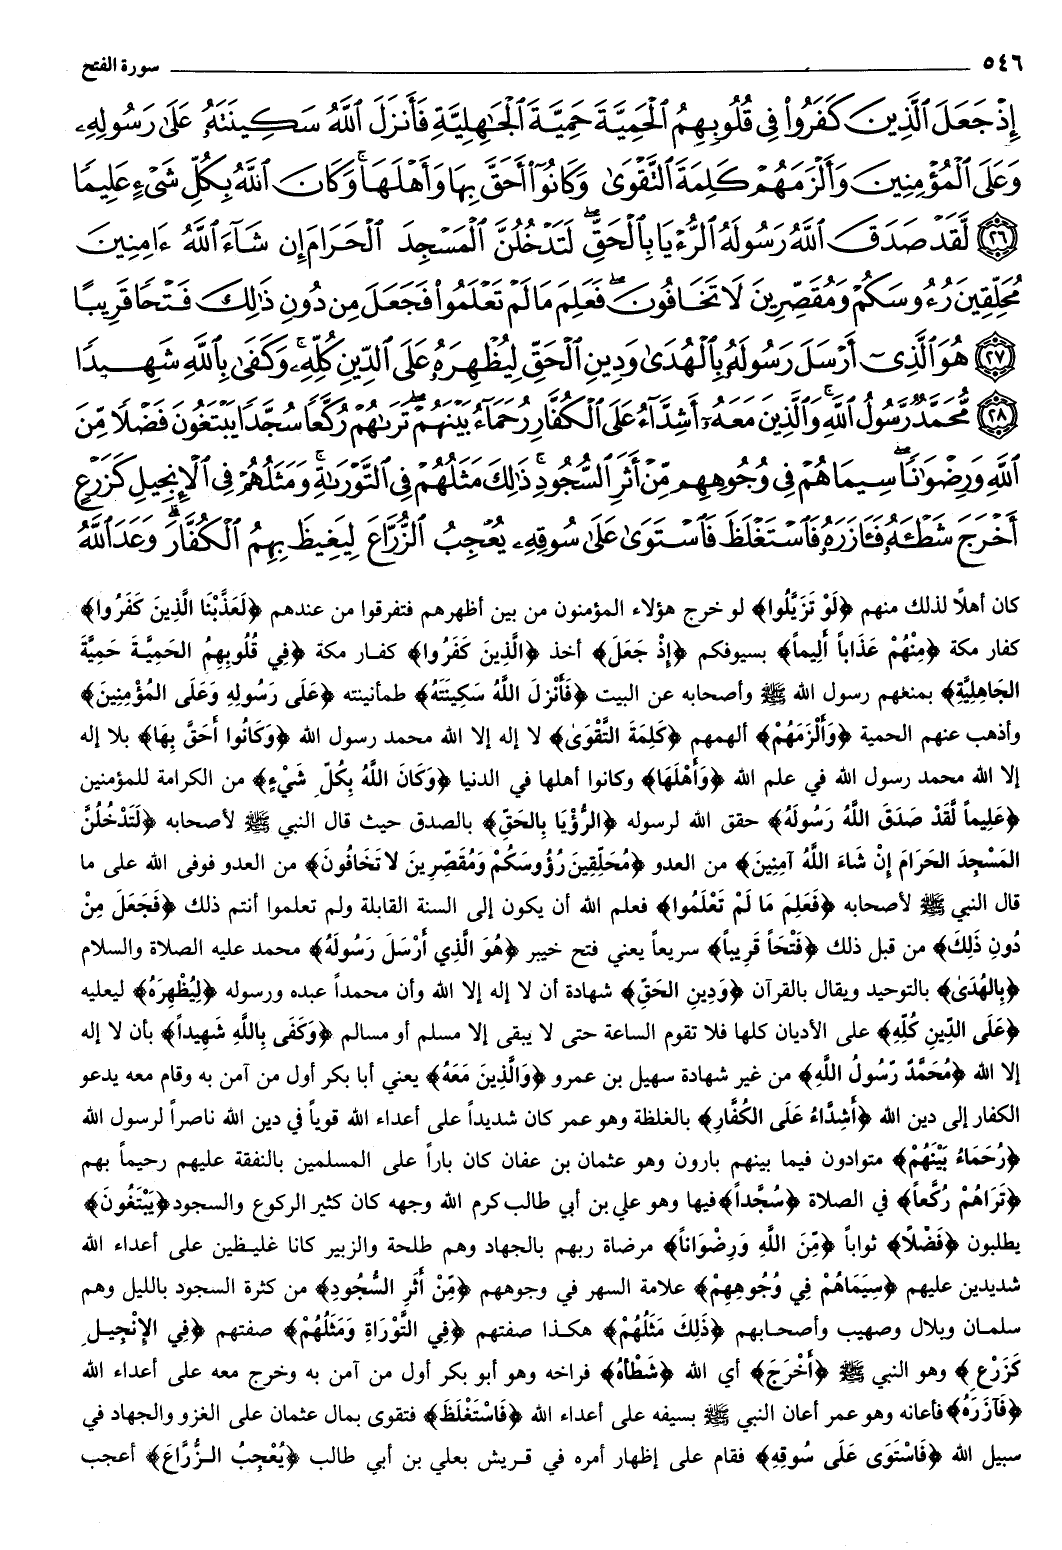 ٥٤٦ سورة الفتح
إِذْ جَعَلَ ٱلَّذِينَ كَفَرُوا۟ فِى قُلُوبِهِمُ ٱلْحَمِيَّةَ حَمِيَّةَ ٱلْجَٰهِلِيَّةِ فَأَنزَلَ ٱللَّهُ سَكِينَتَهُۥ عَلَىٰ رَسُولِهِۦ
وَعَلَى ٱلْمُؤْمِنِينَ وَأَلْزَمَهُمْ كَلِمَةَ ٱلتَّقْوَىٰ وَكَانُوٓا۟ أَحَقَّ بِهَا وَأَهْلَهَا ۚ وَكَانَ ٱللَّهُ بِكُلِّ شَىْءٍ عَلِيمًا
٢٦ لَّقَدْ صَدَقَ ٱللَّهُ رَسُولَهُ ٱلرُّءْيَا بِٱلْحَقِّ ۖ لَتَدْخُلُنَّ ٱلْمَسْجِدَ ٱلْحَرَامَ إِن شَآءَ ٱللَّهُ ءَامِنِينَ
مُحَلِّقِينَ رُءُوسَكُمْ وَمُقَصِّرِينَ لَا تَخَافُونَ ۖ فَعَلِمَ مَا لَمْ تَعْلَمُوا۟ فَجَعَلَ مِن دُونِ ذَٰلِكَ فَتْحًا قَرِيبًا
٢٧ هُوَ ٱلَّذِىٓ أَرْسَلَ رَسُولَهُۥ بِٱلْهُدَىٰ وَدِينِ ٱلْحَقِّ لِيُظْهِرَهُۥ عَلَى ٱلدِّينِ كُلِّهِۦ ۚ وَكَفَىٰ بِٱللَّهِ شَهِيدًا
٢٨ مُّحَمَّدٌ رَّسُولُ ٱللَّهِ ۚ وَٱلَّذِينَ مَعَهُۥٓ أَشِدَّآءُ عَلَى ٱلْكُفَّارِ رُحَمَآءُ بَيْنَهُمْ ۖ تَرَىٰهُمْ رُكَّعًا سُجَّدًا يَبْتَغُونَ فَضْلًا مِّنَ
ٱللَّهِ وَرِضْوَٰنًا ۖ سِيمَاهُمْ فِى وُجُوهِهِم مِّنْ أَثَرِ ٱلسُّجُودِ ۚ ذَٰلِكَ مَثَلُهُمْ فِى ٱلتَّوْرَىٰةِ ۚ وَمَثَلُهُمْ فِى ٱلْإِنجِيلِ كَزَرْعٍ
أَخْرَجَ شَطْـَٔهُۥ فَـَٔازَرَهُۥ فَٱسْتَغْلَظَ فَٱسْتَوَىٰ عَلَىٰ سُوقِهِۦ يُعْجِبُ ٱلزُّرَّاعَ لِيَغِيظَ بِهِمُ ٱلْكُفَّارَ ۗ وَعَدَ ٱللَّهُ
كان أهلًا لذلك منهم ﴿لَوْ تَزَيَّلُوا﴾ لو خرج هؤلاء المؤمنون من بين أظهرهم فتفرقوا من عندهم ﴿لَعَذَّبْنَا الَّذِينَ كَفَرُوا﴾
كفار مكة ﴿مِنْهُمْ عَذَاباً أَلِيماً﴾ بسيوفكم ﴿إِذْ جَعَلَ﴾ أخذ ﴿الَّذِينَ كَفَرُوا﴾ كفار مكة ﴿فِي قُلُوبِهِمُ الحَمِيَّةَ حَمِيَّةَ
الجَاهِلِيَّةِ﴾ بمنعهم رسول الله ﷺ وأصحابه عن البيت ﴿فَأَنْزَلَ اللَّهُ سَكِينَتَهُ﴾ طمأنينته ﴿عَلَى رَسُولِهِ وَعَلَى المُؤْمِنِينَ﴾
وأذهب عنهم الحمية ﴿وَأَلْزَمَهُمْ﴾ ألهمهم ﴿كَلِمَةَ التَّقْوَىٰ﴾ لا إله إلا الله محمد رسول الله ﴿وَكَانُوا أَحَقَّ بِهَا﴾ بلا إله
إلا الله محمد رسول الله في علم الله ﴿وَأَهْلَهَا﴾ وكانوا أهلها في الدنيا ﴿وَكَانَ اللَّهُ بِكُلِّ شَيْءٍ﴾ من الكرامة للمؤمنين
﴿عَلِيماً لَّقَدْ صَدَقَ اللَّهُ رَسُولَهُ﴾ حقق الله لرسوله ﴿الرُّؤْيَا بِالحَقِّ﴾ بالصدق حيث قال النبي ﷺ لأصحابه ﴿لَتَدْخُلُنَّ
المَسْجِدَ الحَرَامَ إِنْ شَاءَ اللَّهُ آمِنِينَ﴾ من العدو ﴿مُحَلِّقِينَ رُؤُوسَكُمْ وَمُقَصِّرِينَ لا تَخَافُونَ﴾ من العدو فوفى الله على ما
قال النبي ﷺ لأصحابه ﴿فَعَلِمَ مَا لَمْ تَعْلَمُوا﴾ فعلم الله أن يكون إلى السنة القابلة ولم تعلموا أنتم ذلك ﴿فَجَعَلَ مِنْ
دُونِ ذَلِكَ﴾ من قبل ذلك ﴿فَتْحَاً قَرِيباً﴾ سريعاً يعني فتح خيبر ﴿هُوَ الَّذِي أَرْسَلَ رَسُولَهُ﴾ محمد عليه الصلاة والسلام
﴿بِالهُدَىٰ﴾ بالتوحيد ويقال بالقرآن ﴿وَدِينِ الحَقِّ﴾ شهادة أن لا إله إلا الله وأن محمداً عبده ورسوله ﴿لِيُظْهِرَهُ﴾ ليعليه
﴿عَلَى الدِّينِ كُلِّهِ﴾ على الأديان كلها فلا تقوم الساعة حتى لا يبقى إلا مسلم أو مسالم ﴿وَكَفَى بِاللَّهِ شَهِيداً﴾ بأن لا إله
إلا الله ﴿مُحَمَّدٌ رَّسُولُ اللَّهِ﴾ من غير شهادة سهيل بن عمرو ﴿وَالَّذِينَ مَعَهُ﴾ يعني أبا بكر أول من آمن به وقام معه يدعو
الكفار إلى دين الله ﴿أَشِدَّاءُ عَلَى الكُفَّارِ﴾ بالغلظة وهو عمر كان شديداً على أعداء الله قوياً في دين الله ناصراً لرسول الله
﴿رُحَمَاءُ بَيْنَهُمْ﴾ متوادون فيما بينهم بارون وهو عثمان بن عفان كان باراً على المسلمين بالنفقة عليهم رحيماً بهم
﴿تَرَاهُمْ رُكَّعاً﴾ في الصلاة ﴿سُجَّداً﴾ فيها وهو علي بن أبي طالب كرم الله وجهه كان كثير الركوع والسجود ﴿يَبْتَغُونَ﴾
يطلبون ﴿فَضْلًا﴾ ثواباً ﴿مِّنَ اللَّهِ وَرِضْوَاناً﴾ مرضاة ربهم بالجهاد وهم طلحة والزبير كانا غليظين على أعداء الله
شديدين عليهم ﴿سِيَمَاهُمْ فِي وُجُوهِهِمْ﴾ علامة السهر في وجوههم ﴿مِّنْ أَثَرِ السُّجُودِ﴾ من كثرة السجود بالليل وهم
سلمان وبلال وصهيب وأصحابهم ﴿ذَلِكَ مَثَلُهُمْ﴾ هكذا صفتهم ﴿فِي التَّوْرَاةِ وَمَثَلُهُمْ﴾ صفتهم ﴿فِي الإِنْجِيلِ
كَزَرْعٍ﴾ وهو النبي ﷺ ﴿أَخْرَجَ﴾ أي الله ﴿شَطْأَهُ﴾ فراخه وهو أبو بكر أول من آمن به وخرج معه على أعداء الله
﴿فَآزَرَهُ﴾ فأعانه وهو عمر أعان النبي ﷺ بسيفه على أعداء الله ﴿فَاسْتَغْلَظَ﴾ فتقوى بمال عثمان على الغزو والجهاد في
سبيل الله ﴿فَاسْتَوَى عَلَى سُوقِهِ﴾ فقام على إظهار أمره في قريش بعلي بن أبي طالب ﴿يُعْجِبُ الزُّرَّاعَ﴾ أعجب